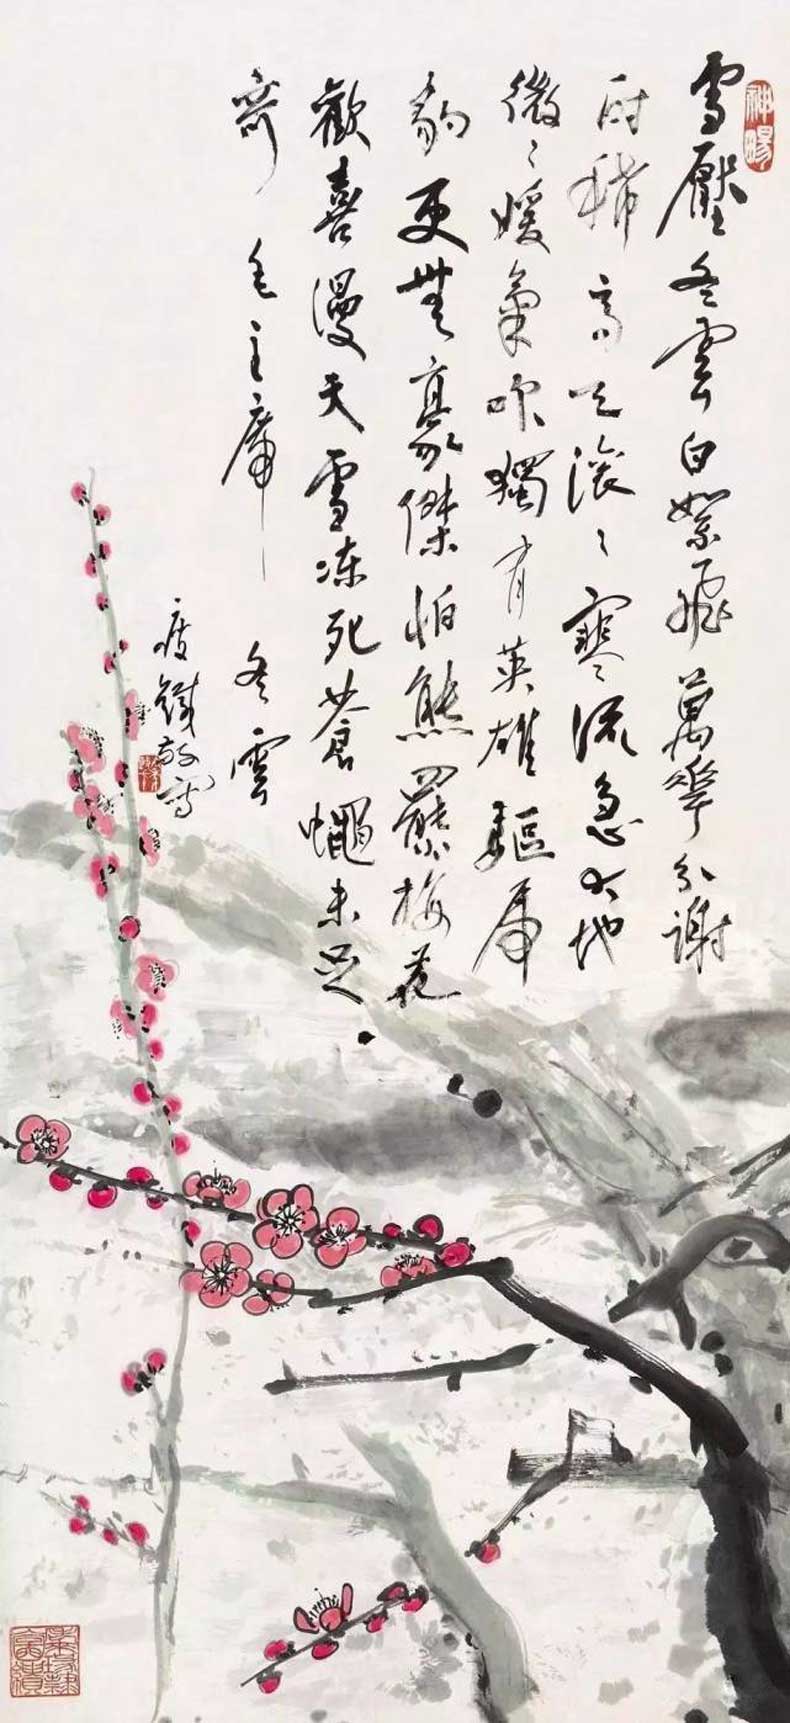 神暢
雪壓冬雲白絮飛萬華分謝
時稀高天滾〻寒流急大地
微〻煖氣吹獨有英雄驅虎
豹更無豪傑怕熊羆梅花
歡喜漫天雪凍死蒼蠅未足
奇 毛主席 冬雲
瘦鐵敬寫